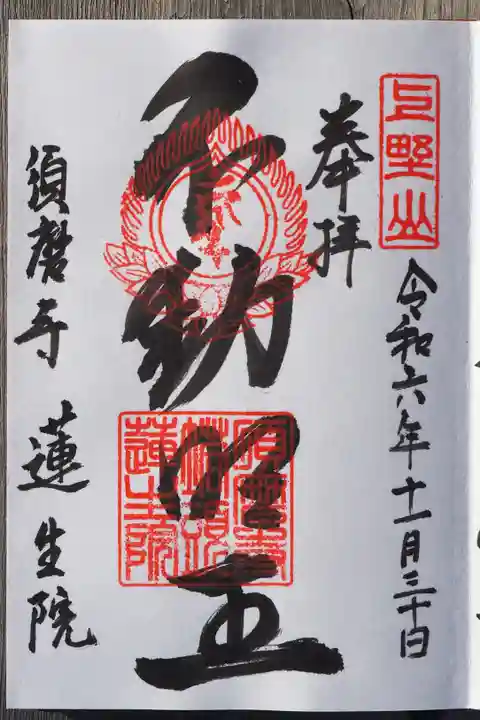 上野山
令和六年十一月三十日
奉拝
不動明王
須磨寺 蓮生院